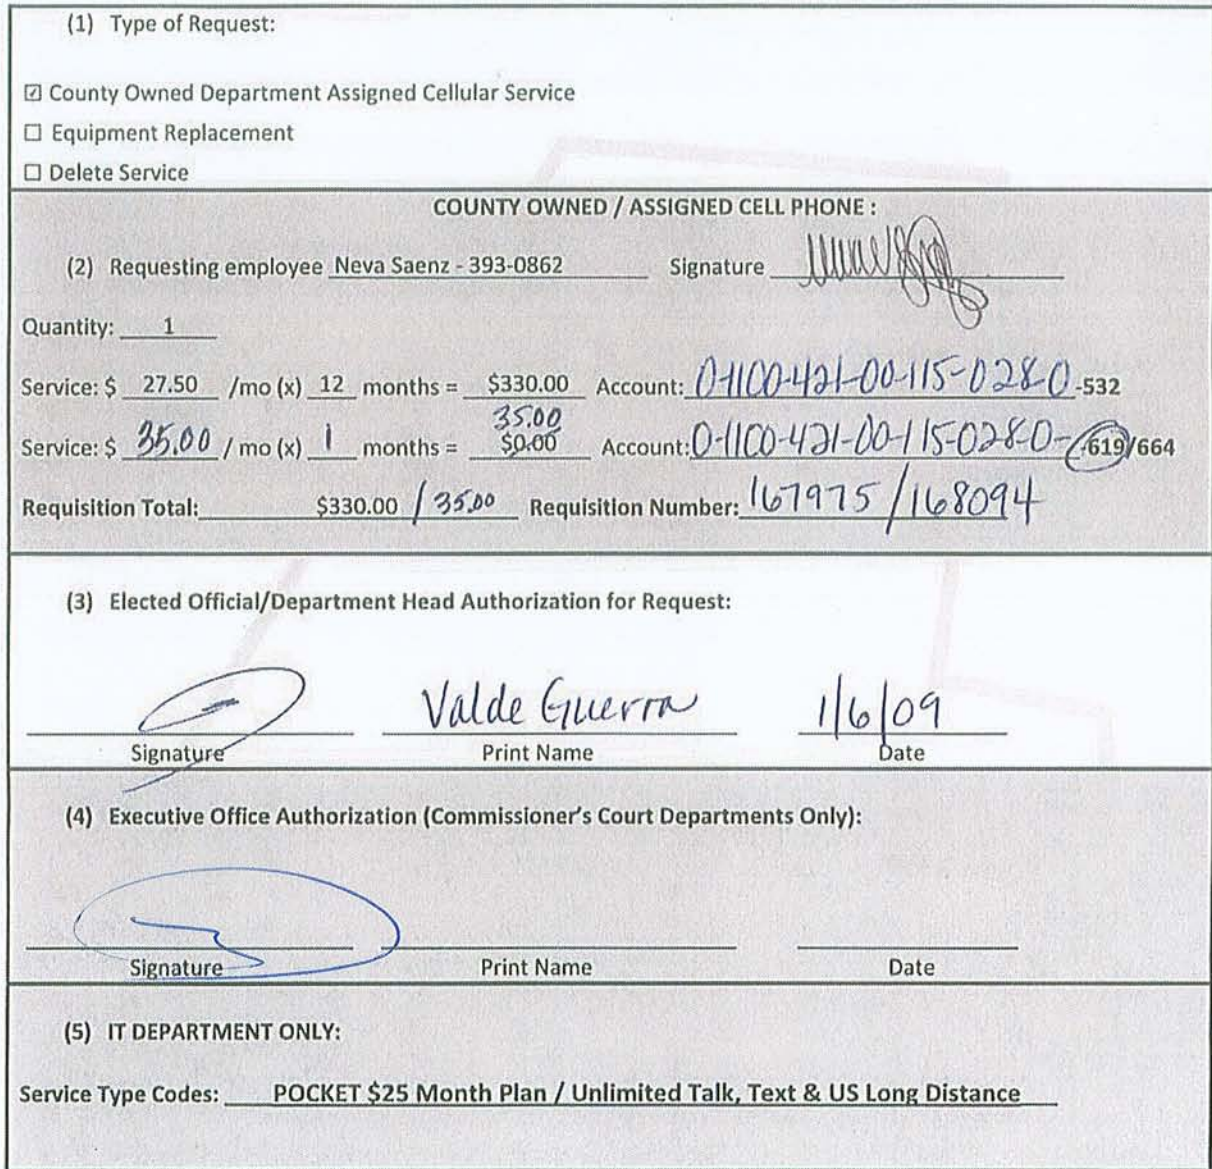 (1) Type of Request:
☑ County Owned Department Assigned Cellular Service
☐ Equipment Replacement
☐ Delete Service
COUNTY OWNED / ASSIGNED CELL PHONE :
(2) Requesting employee Neva Saenz - 393-0862 Signature
Quantity: 1
Service: $ 27.50 /mo (x) 12 months = $330.00 Account: 0-1100-421-00-115-028-0 -532
35.00
Service: $ 35.00 / mo (x) 1 months = $0.00 Account: 0-1100-421-00-115-028-0- -619/664
Requisition Total: $330.00 / 35.00 Requisition Number: 167975 / 168094
(3) Elected Official/Department Head Authorization for Request:
Valde Guerra 1/6/09
Signature Print Name Date
(4) Executive Office Authorization (Commissioner's Court Departments Only):
Signature Print Name Date
(5) IT DEPARTMENT ONLY:
Service Type Codes: POCKET $25 Month Plan / Unlimited Talk, Text & US Long Distance